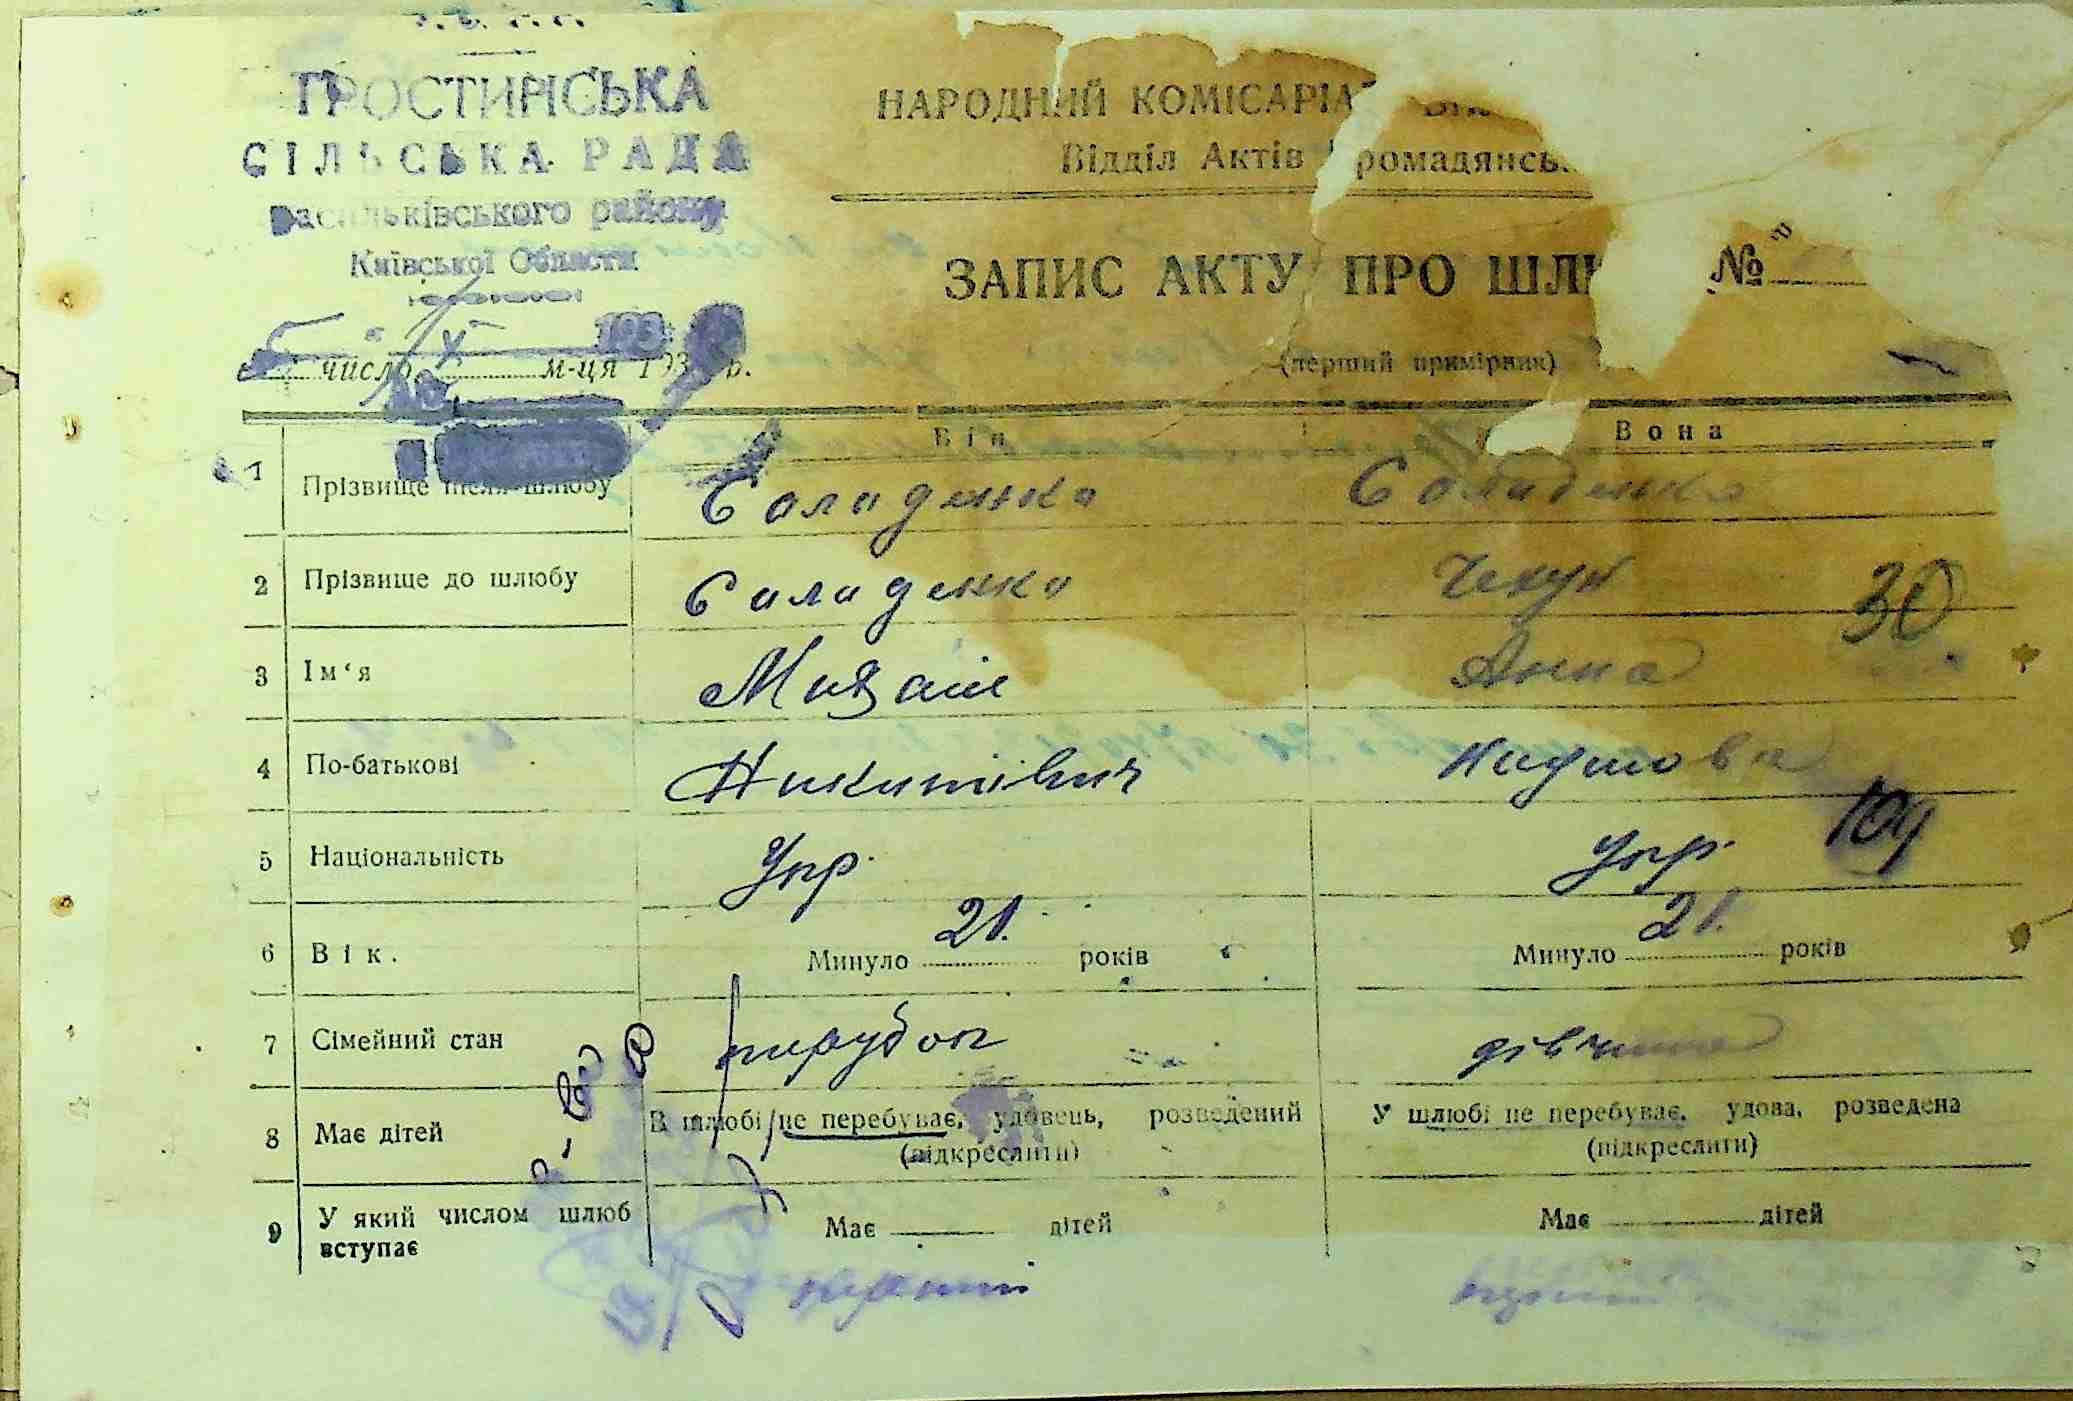 ТРОСТИНСЬКА
СІЛЬСЬКА РАДА
Васильківського району
Київської Области
число м-ця 193 р.
НАРОДНИЙ КОМІСАРІАТ
Відділ Актів Громадянсь
ЗАПИС АКТУ ПРО ШЛЮ №
(перший примірник)
Він Вона
1 Прізвище після шлюбу Саладенко Саладенко
2 Прізвище до шлюбу Саладенко Чехун 30
3 Ім'я Михаіл Анна
4 По-батькові Никитівич Наумова
5 Національність Укр. Укр. 104
6 Вік. Минуло 21. років Минуло 21. років
7 Сімейний стан парубок дівчина
8 Має дітей В шлюбі не перебуває, удовець, розведений У шлюбі не перебуває, удова, розведена
(підкреслити) (підкреслити)
9 У який числом шлюб вступає Має дітей Має дітей